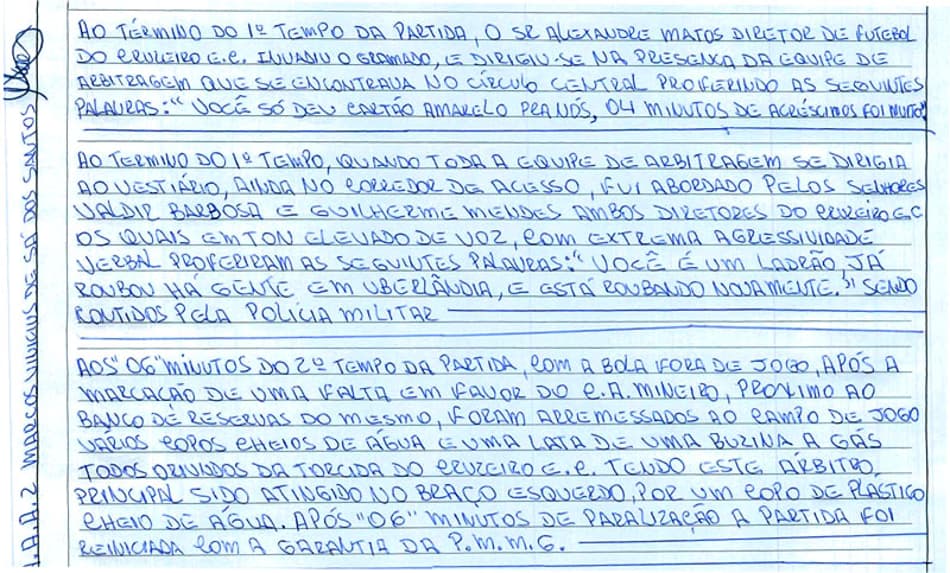 AO TÉRMINO DO 1º TEMPO DA PARTIDA, O SR ALEXANDRE MATOS DIRETOR DE FUTEBOL
DO CRUZEIRO E.C. INVADIU O GRAMADO, E DIRIGIU-SE NA PRESENÇA DA EQUIPE DE
ARBITRAGEM QUE SE ENCONTRAVA NO CÍRCULO CENTRAL PROFERINDO AS SEGUINTES
PALAVRAS: "VOCÊ SÓ DEU CARTÃO AMARELO PRA NÓS, 04 MINUTOS DE ACRÉSCIMOS FOI MUITO"
AO TERMINO DO 1º TEMPO, QUANDO TODA A EQUIPE DE ARBITRAGEM SE DIRIGIA
AO VESTIÁRIO, AINDA NO CORREDOR DE ACESSO, FUI ABORDADO PELOS SENHORES
VALDIR BARBOSA E GUILHERME MENDES AMBOS DIRETORES DO CRUZEIRO E.C
OS QUAIS EM TON ELEVADO DE VOZ, COM EXTREMA AGRESSIVIDADE
VERBAL PROFERIRAM AS SEGUINTES PALAVRAS: "VOCÊ É UM LADRÃO, JÁ
ROUBOU HÁ GENTE EM UBERLÂNDIA, E ESTÁ ROUBANDO NOVAMENTE." SENDO
CONTIDOS PELA POLÍCIA MILITAR
AOS "06" MINUTOS DO 2º TEMPO DA PARTIDA, COM A BOLA FORA DE JOGO, APÓS A
MARCAÇÃO DE UMA FALTA EM FAVOR DO C.A. MINEIRO, PRÓXIMO AO
BANCO DE RESERVAS DO MESMO, FORAM ARREMESSADOS AO CAMPO DE JOGO
VÁRIOS COPOS CHEIOS DE ÁGUA E UMA LATA DE UMA BUZINA A GÁS
TODOS ORIUNDOS DA TORCIDA DO CRUZEIRO E.C. TENDO ESTE ÁRBITRO
PRINCIPAL SIDO ATINGIDO NO BRAÇO ESQUERDO, POR UM COPO DE PLASTICO
CHEIO DE ÁGUA. APÓS "06" MINUTOS DE PARALIZAÇÃO A PARTIDA FOI
REINICIADA COM A GARANTIA DA P.M.M.G.
A.A.2 MARCOS VINICIUS DE SÁ DOS SANTOS